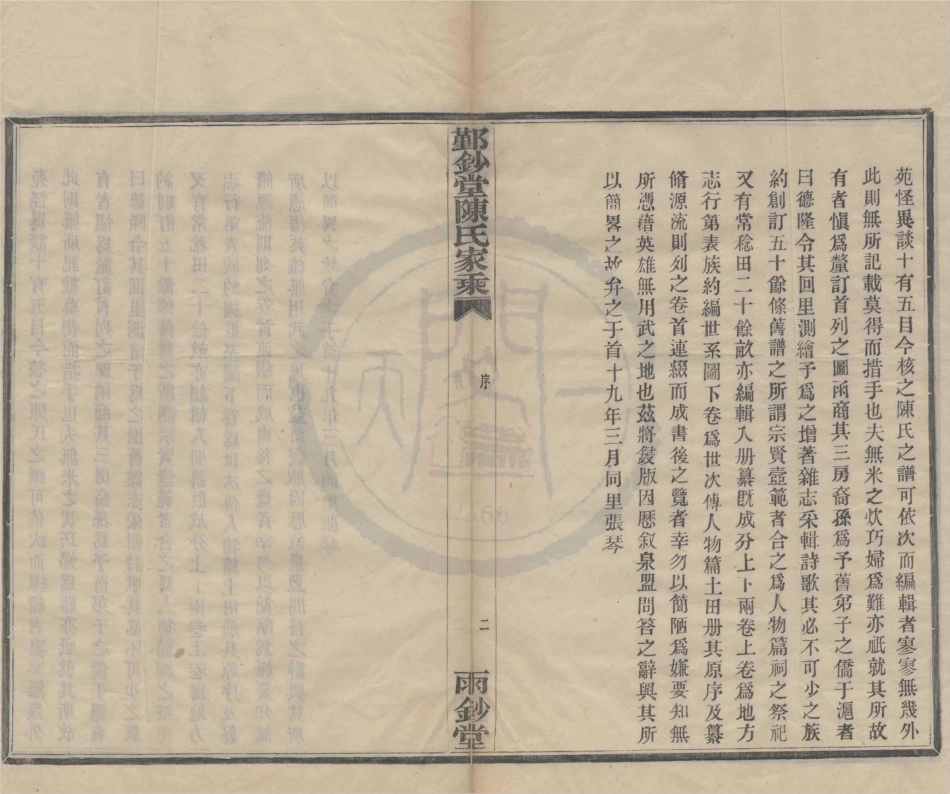 苑怪異談十有五目今核之陳氏之譜可依次而編輯者寥寥無幾外
此則無所記載莫得而措手也夫無米之炊巧婦爲難亦祇就其所故
有者愼爲釐訂首列之圖函商其三房裔孫爲予舊弟子之僑于滬者
曰德隆令其回里測繪予爲之增著雜志采輯詩歌其必不可少之族
約創訂五十餘條舊譜之所謂宗賢壼範者合之爲人物篇祠之祭祀
又有常稔田二十餘畝亦編輯入册纂旣成分上下兩卷上卷爲地方
志行第表族約編世系圖下卷爲世次傳人物篇土田册其原序及纂
脩源流則列之卷首連綴而成書後之覽者幸勿以簡陋爲嫌要知無
所憑藉英雄無用武之地也茲將鋟版因厯叙泉盟問答之辭與其所
以簡畧之故弁之于首十九年三月同里張琴
鄞鈔堂陳氏家乘
序
二
雨鈔堂